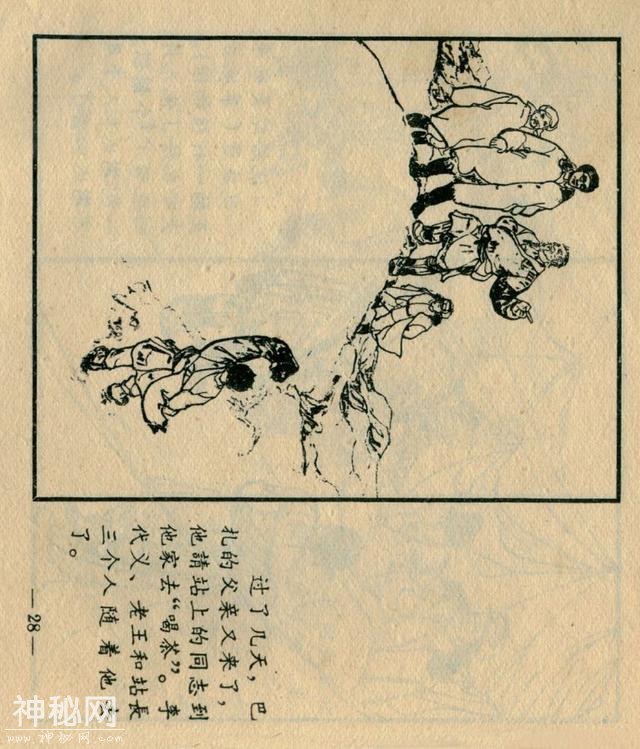 过了几天，巴
扎的父亲又来了，
他請站上的同志到
他家去“喝茶”。李
代义、老王和站長
三个人随着他去
了。
—28—
神秘网